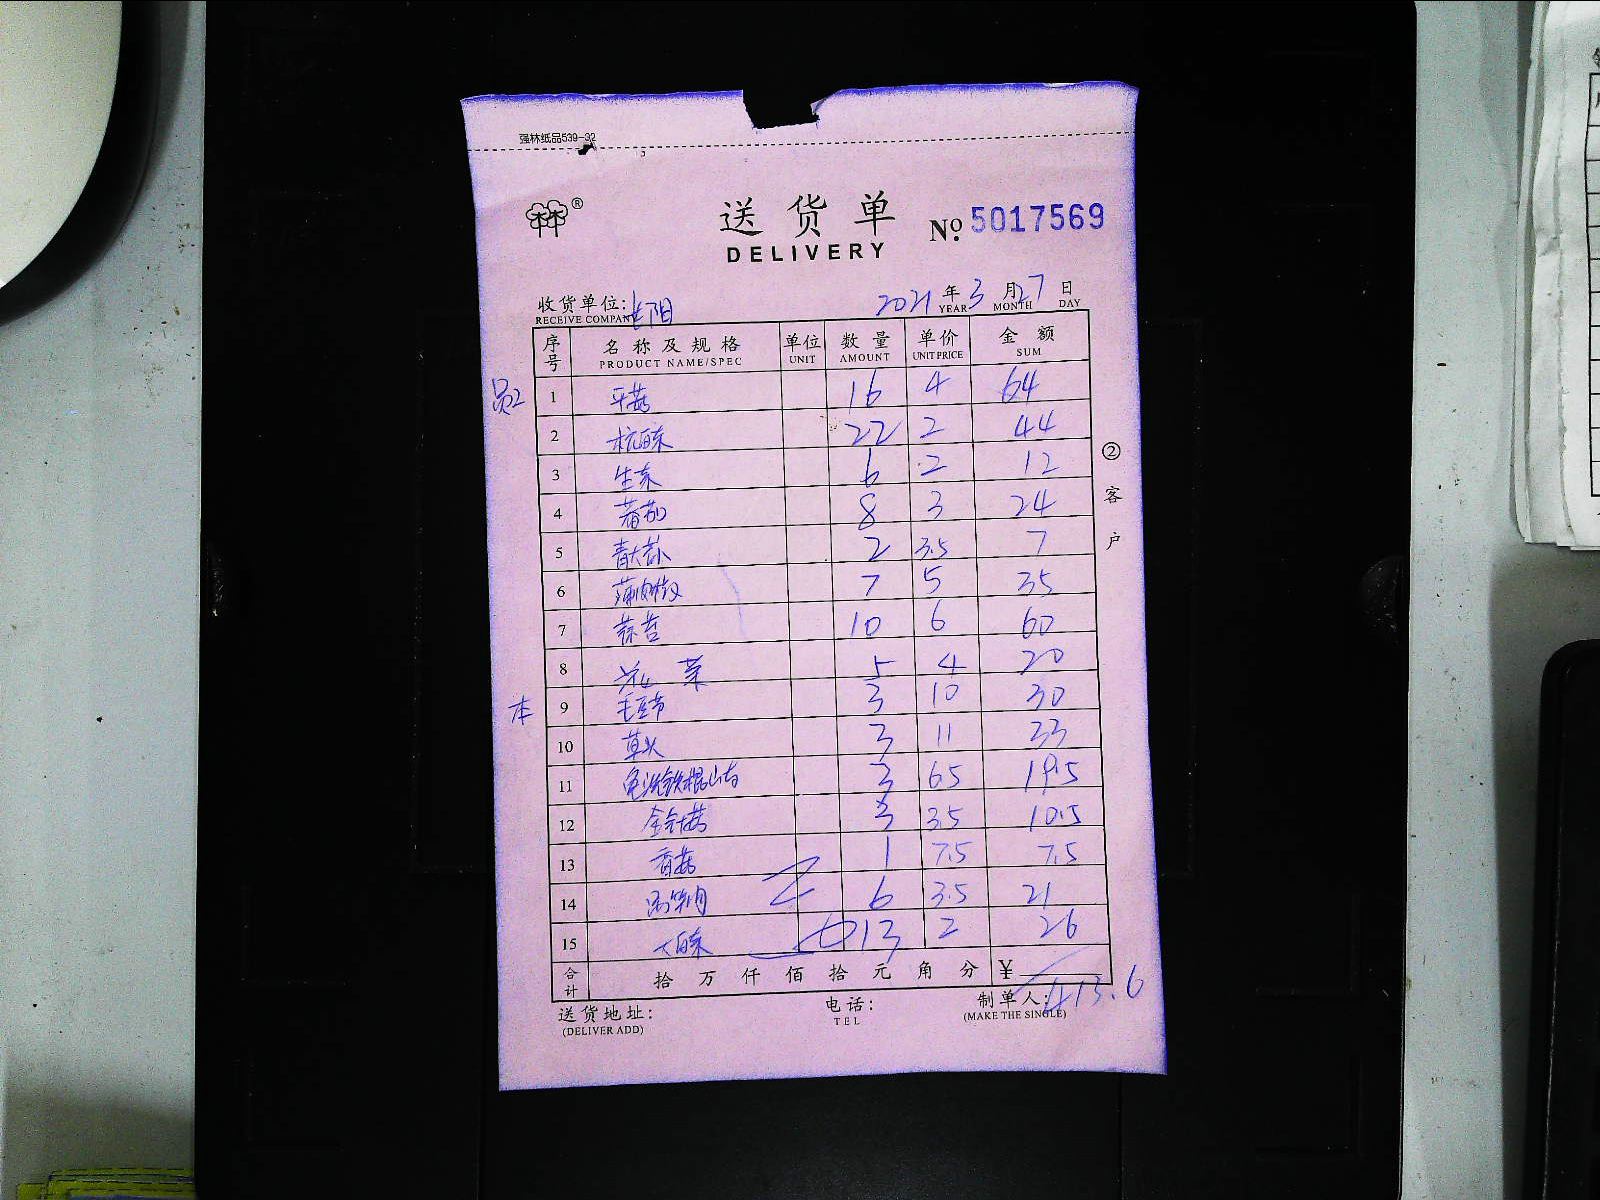 强林纸品539-32
林林®
送货单 № 5017569
DELIVERY
收货单位: 2021年3月27日
RECEIVE COMPANY YEAR MONTH DAY
序号 名称及规格 单位 数量 单价 金额
PRODUCT NAME/SPEC UNIT AMOUNT UNIT PRICE SUM
员2 1 平菇 16 4 64
2 杭白菜 22 2 44
3 生菜 6 2 12
4 蕃茄 8 3 24
5 青大 2 3.5 7
6 薄肉椒 7 5 35
7 蒜苔 10 6 60
8 菜 5 4 20
本 9 毛豆节 3 10 30
10 草头 3 11 33
11 免洗铁棍山 3 65 19.5
12 金针菇 3 3.5 10.5
13 香菇 1 7.5 7.5
14 6 3.5 21
15 大白菜 13 2 26
合计 拾万仟佰拾元角分 ¥ 413.6
②客户
送货地址: 电话: 制单人:
(DELIVER ADD) TEL (MAKE THE SINGLE)